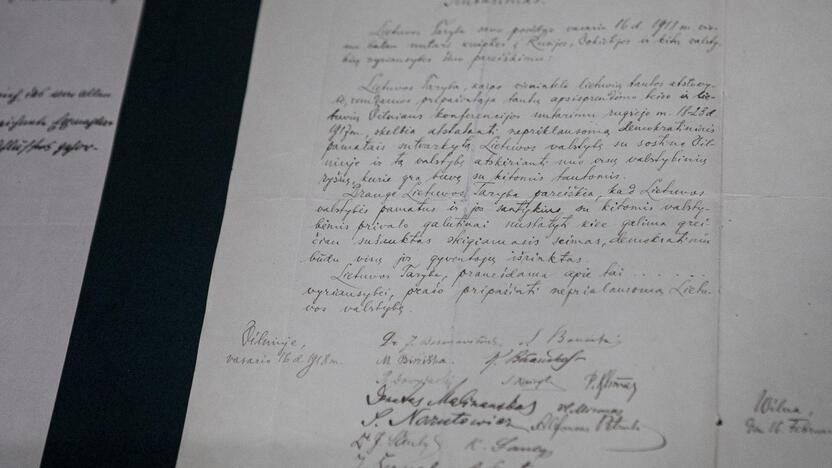 Nutarimas.
Lietuvos Taryba savo posėdyje vasario 16 d. 1918 m. vie-
nu balsu nutarė kreiptis į Rusijos, Vokietijos ir kitų valsty-
bių vyriausybes šiuo pareiškimu:
Lietuvos Taryba, kaipo vienintelė lietuvių tautos atstovy-
bė, remdamos pripažintąja tautų apsisprendimo teise ir lie-
tuvių Vilniaus konferencijos nutarimu rugsėjo m. 18-23 d.
1917 m., skelbia atstatanti nepriklausomą demokratiniais
pamatais sutvarkytą Lietuvos valstybę su sostine Vil-
niuje ir tą valstybę atskirianti nuo visų valstybinių
ryšių, kurie yra buvę su kitomis tautomis.
Drauge Lietuvos Taryba pareiškia, kad Lietuvos
valstybės pamatus ir jos santykius su kitomis valsty-
bėmis privalo galutinai nustatyti kiek galima grei-
čiau sušauktas steigiamasis seimas, demokratiniu
būdu visų jos gyventojų išrinktas.
Lietuvos Taryba, pranešdama apie tai . . . . . .
vyriausybei, prašo pripažinti nepriklausomą Lietu-
vos valstybę.
Vilniuje,
vasario 16 d. 1918 m.
Dr. J. Basanavičius
S. Banaitis
M. Biržiška.
K. Bizauskas
P. Klimas
Donatas Malinauskas
S. Narutowicz
Alfonsas Petrulis
K. Šaulys
Wilna,
den 16. Februar